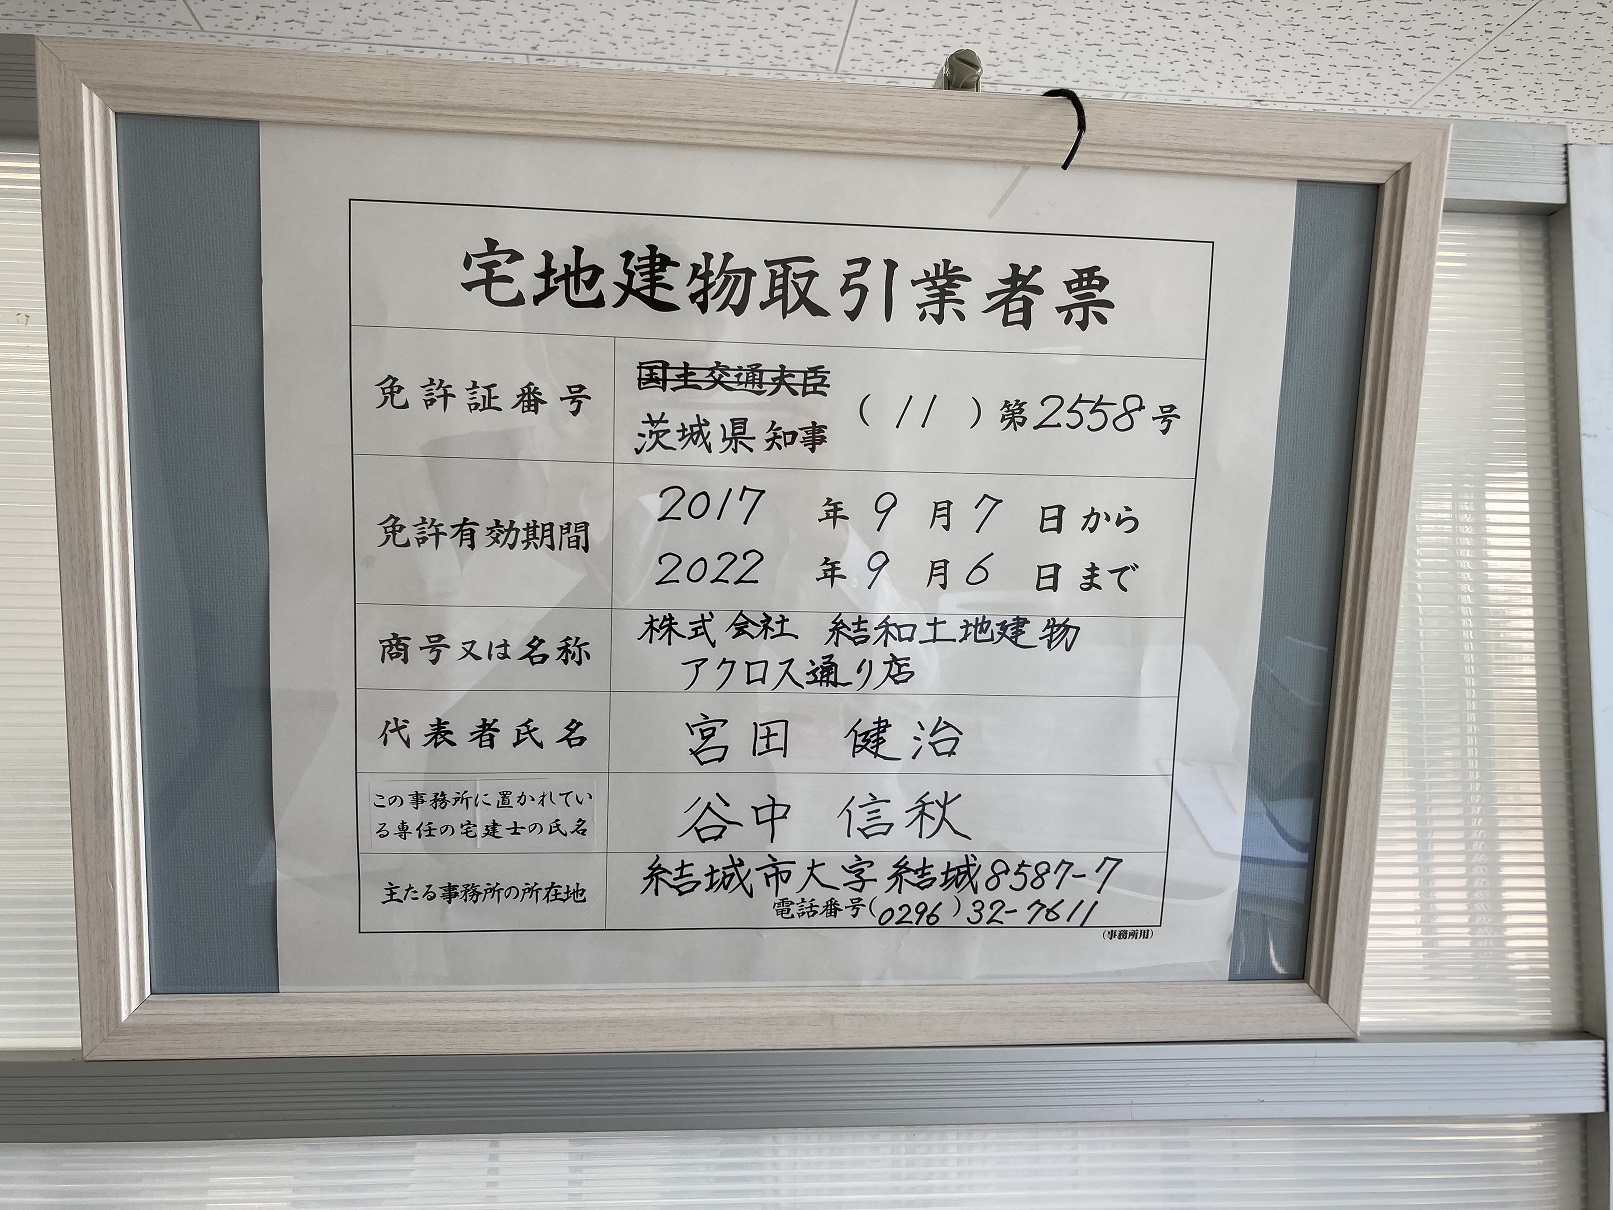 宅地建物取引業者票
免許証番号
国土交通大臣
茨城県知事
(11)第2558号
免許有効期間
2017年9月7日から
2022年9月6日まで
商号又は名称
株式会社 結和土地建物
アクロス通り店
代表者氏名
宮田 健治
この事務所に置かれてい
る専任の宅建士の氏名
谷中 信秋
主たる事務所の所在地
結城市大字結城8587-7
電話番号(0296)32-7611
(事務所用)